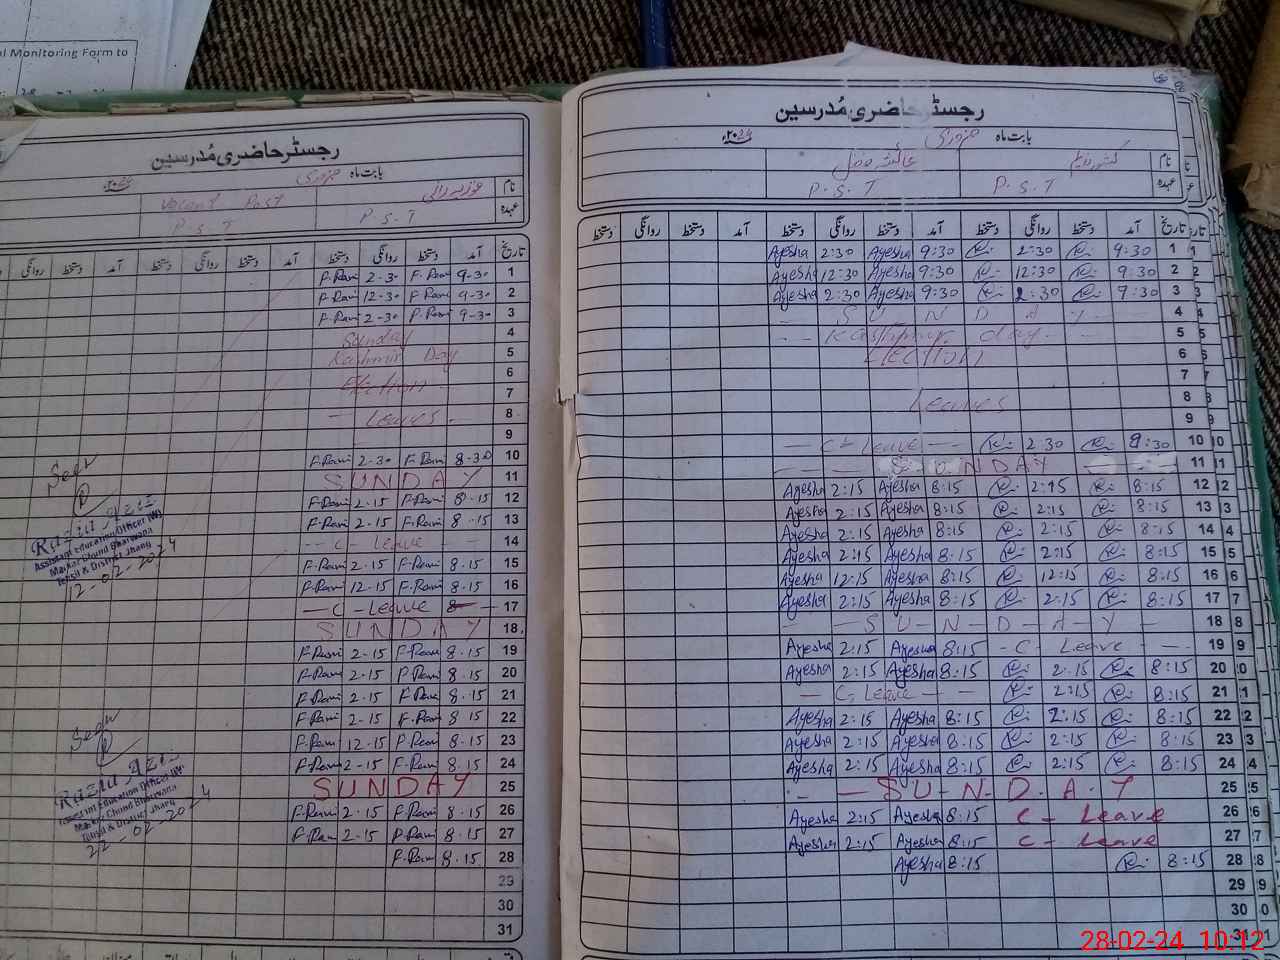 l Monitoring Form to
رجسٹر حاضری مُدرسین
بابت ماہ فروری ۲۰۲۴ء
نام فوزیہ رانی Vacent Post
عہدہ P.S.T P.S.T
تاریخ آمد دستخط روانگی دستخط آمد دستخط روانگی دستخط آمد دستخط روانگی
1 9-30 F-Rani 2-30 F-Rani
2 9-30 F-Rani 12-30 F-Rani
3 9-30 F-Rani 2-30 F-Rani
4 Sunday
5 Kashmir Day
6 Election
7
8 - Leaves.
9
10 8-30 F-Rani 2-30 F-Rani
11 SUNDAY
12 8.15 F-Rani 2-15 F-Rani
13 8.15 F-Rani 2-15 F-Rani
14 -- C - Leave --
15 8.15 F-Rani 2-15 F-Rani
16 8.15 F-Rani 12-15 F-Rani
17 — C - Leave —
18 SUNDAY
19 8.15 F-Rani 2-15 F-Rani
20 8.15 F-Rani 2-15 F-Rani
21 8.15 F-Rani 2-15 F-Rani
22 8.15 F-Rani 2-15 F-Rani
23 8.15 F-Rani 12-15 F-Rani
24 8.15 F-Rani 2-15 F-Rani
25 SUNDAY
26 8.15 F-Rani 2-15 F-Rani
27 8.15 F-Rani 2-15 F-Rani
28 8.15 F-Rani
29
30
31
Seen
Razia Azis
Assistant Education Officer (W)
Markaz Chund Bharwana
Tehsil & District Jhang
12-02-2024
Seen
Razia Azis
Assistant Education Officer (W)
Markaz Chund Bharwana
Tehsil & District Jhang
22-02-2024
رجسٹر حاضری مُدرسین
بابت ماہ فروری ۲۰۲۴ء
نام کشور نائلہ
عہدہ P.S.T P.S.T
تاریخ آمد دستخط روانگی دستخط آمد دستخط روانگی دستخط آمد دستخط روانگی دستخط
1 9:30 2:30 9:30 Ayesha 2:30 Ayesha
2 9:30 12:30 9:30 Ayesha 12:30 Ayesha
3 9:30 2:30 9:30 Ayesha 2:30 Ayesha
4 -- SUNDAY --
5 -- Kashmir day --
6 ELECTION
7
8 Leaves
9
10 9:30 2:30 — C - Leave —
11 SUNDAY
12 8:15 2:15 8:15 Ayesha 2:15 Ayesha
13 8:15 2:15 8:15 Ayesha 2:15 Ayesha
14 8:15 2:15 8:15 Ayesha 2:15 Ayesha
15 8:15 2:15 8:15 Ayesha 2:15 Ayesha
16 8:15 12:15 8:15 Ayesha 12:15 Ayesha
17 8:15 2:15 8:15 Ayesha 2:15 Ayesha
18 - S-U-N-D-A-Y -
19 - C- Leave - 8:15 Ayesha 2:15 Ayesha
20 8:15 2:15 8:15 Ayesha 2:15 Ayesha
21 8:15 2:15 — C- Leave —
22 8:15 2:15 8:15 Ayesha 2:15 Ayesha
23 8:15 2:15 8:15 Ayesha 2:15 Ayesha
24 8:15 2:15 8:15 Ayesha 2:15 Ayesha
25 — S-U-N-D-A-Y
26 C- Leave 8:15 Ayesha 2:15 Ayesha
27 C- Leave 8:15 Ayesha 2:15 Ayesha
28 8:15 8:15 Ayesha
29
30
31
28-02-24 10:12